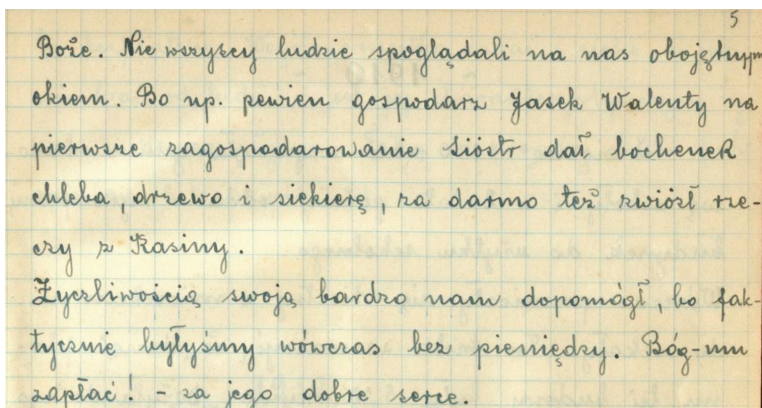 5
Boże. Nie wszyscy ludzie spoglądali na nas obojętnym
okiem. Bo np. pewien gospodarz Jasek Walenty na
pierwsze zagospodarowanie Sióstr dał bochenek
chleba, drzewo i siekierę, za darmo też zwiózł rze-
czy z Kasiny.
Życzliwością swoją bardzo nam dopomógł, bo fak-
tycznie byłyśmy wówczas bez pieniędzy. Bóg-mu
zapłać! - za jego dobre serce.